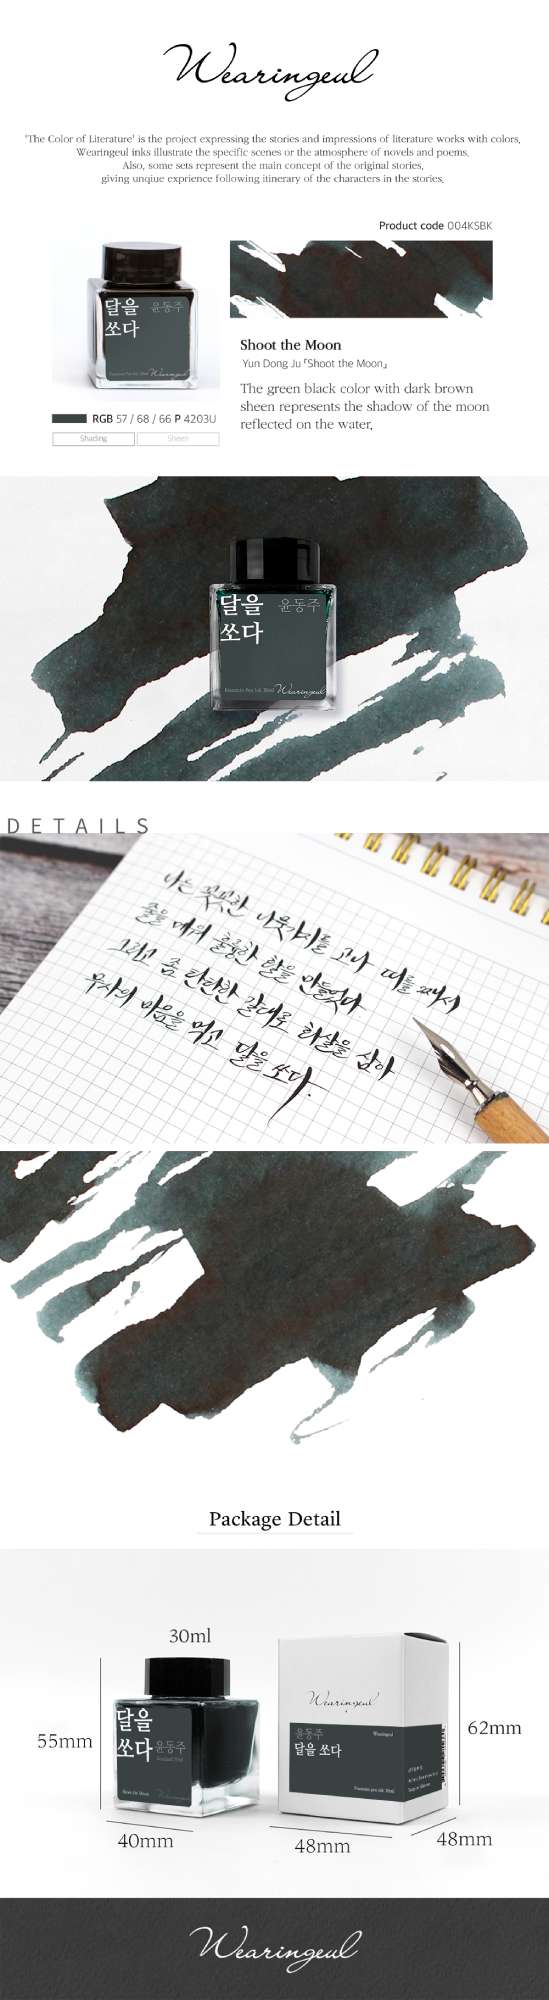 Wearingeul
'The Color of Literature' is the project expressing the stories and impressions of literature works with colors.
Wearingeul inks illustrate the specific scenes or the atmosphere of novels and poems.
Also, some sets represent the main concept of the original stories,
giving unqiue exprience following itinerary of the characters in the stories.
Product code 004KSBK
달을 윤동주
쏘다
Fountain Pen Ink 30ml Wearingeul
Shoot the Moon
Yun Dong Ju 「Shoot the Moon」
The green black color with dark brown
sheen represents the shadow of the moon
reflected on the water.
RGB 57 / 68 / 66 P 4203U
Shading Sheen
달을 윤동주
쏘다
Fountain Pen Ink 30ml Wearingeul
DETAILS
나는 꼿꼿한 나뭇가지를 고나 띠를 째서
줄을 메워 훌륭한 활을 만들었다
그리고 좀 탄탄한 갈대로 화살을 삼아
무사의 마음을 먹고 달을 쏘다.
Package Detail
30ml
55mm
40mm
달을
쏘다 윤동주
Shoot the Moon Wearingeul
Wearingeul
윤동주 Wearingeul
달을 쏘다
Fountain pen ink 30ml
62mm
48mm
48mm
Wearingeul